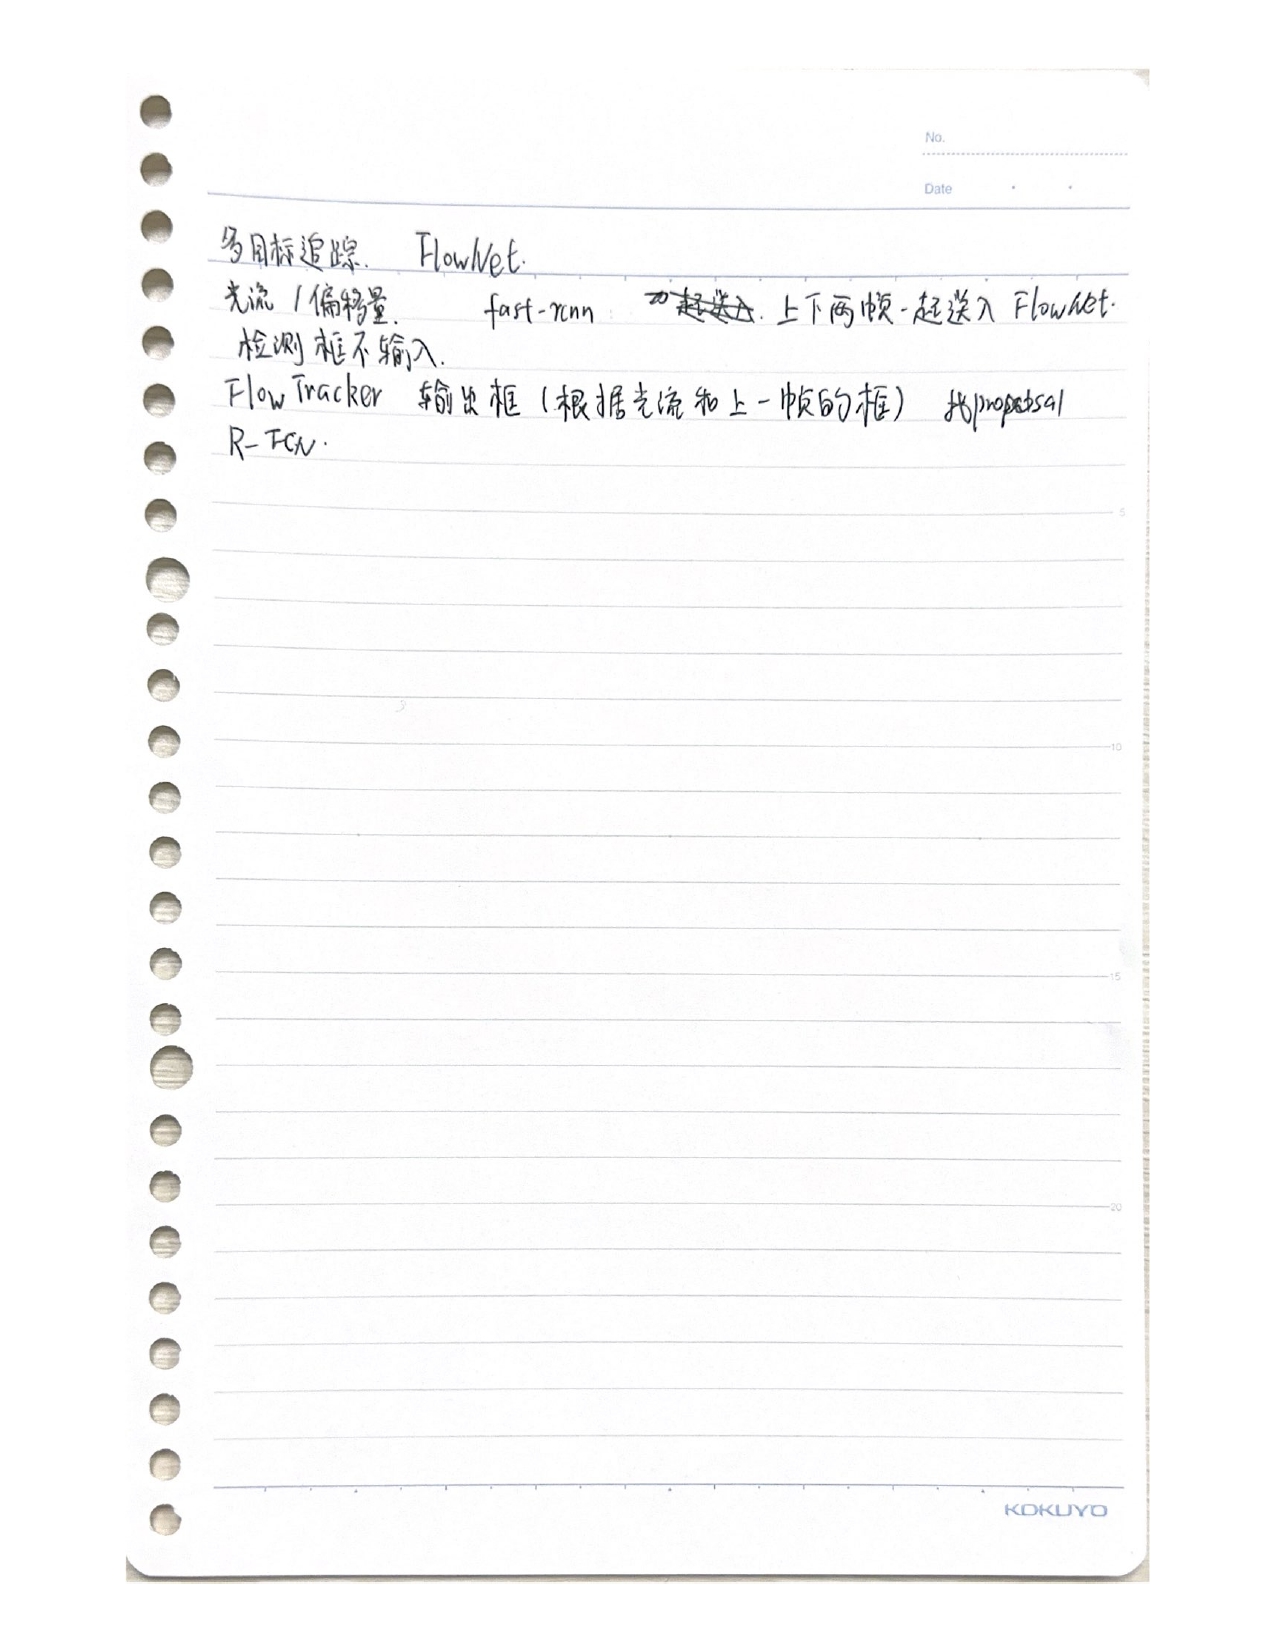 No.
Date
多目标追踪. FlowNet.
光流/偏移量. fast-rcnn 上下两帧一起送入 FlowNet.
检测框不输入.
FlowTracker 输出框(根据光流和上一帧的框) proposal
R-FCN.
5
10
15
20
KOKUYO